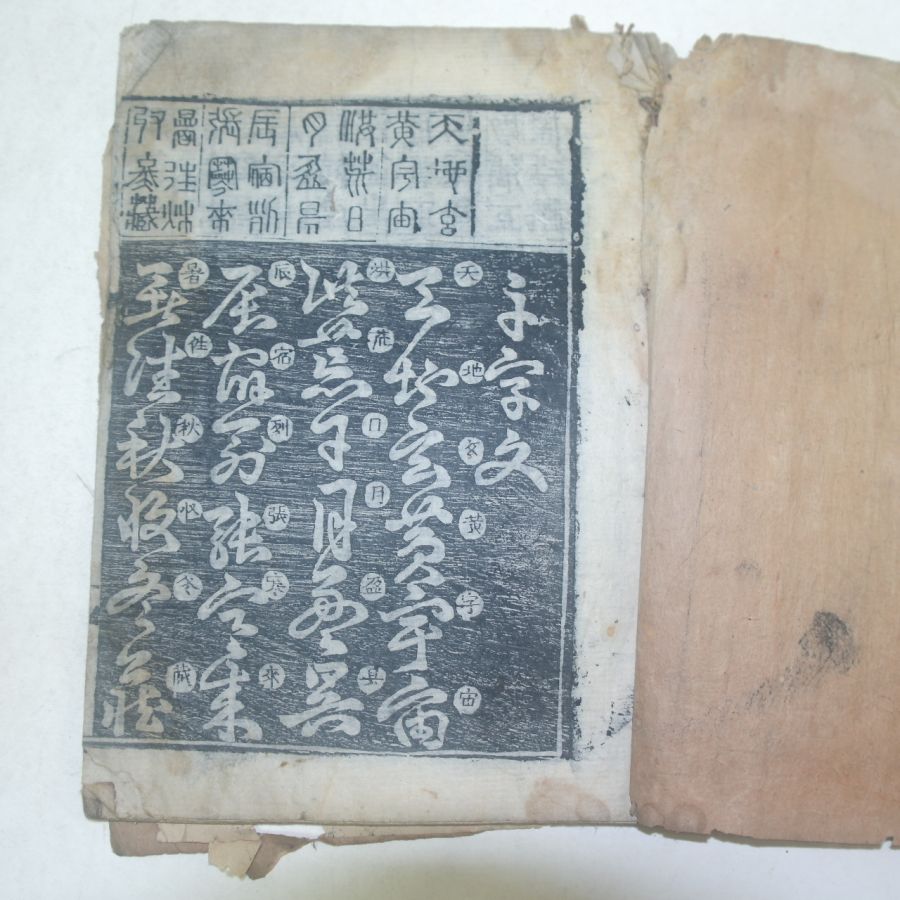 天地玄
黃宇宙
洪荒日
月盈昃
辰宿列
張寒來
暑往秋
收冬藏
千字文
天地玄黃宇宙
天地玄黃宇宙
洪荒日月盈昃
洪荒日月盈昃
辰宿列張寒來
辰宿列張寒來
暑往秋收冬藏
暑往秋收冬藏